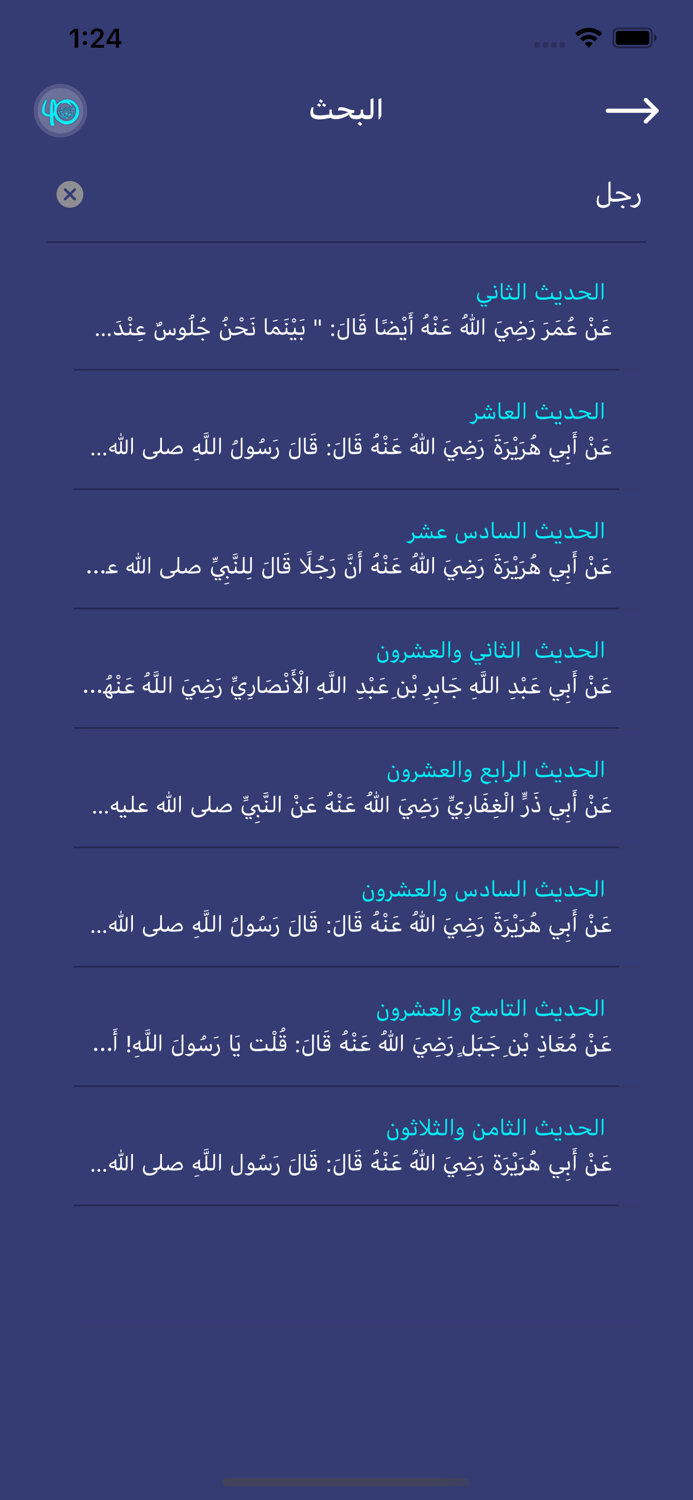 1:24
البحث
رجل
الحديث الثاني
عَنْ عُمَرَ رَضِيَ اللهُ عَنْهُ أَيْضًا قَالَ: " بَيْنَمَا نَحْنُ جُلُوسٌ عِنْدَ...
الحديث العاشر
عَنْ أَبِي هُرَيْرَةَ رَضِيَ اللهُ عَنْهُ قَالَ: قَالَ رَسُولُ اللَّهِ صلى الله...
الحديث السادس عشر
عَنْ أَبِي هُرَيْرَةَ رَضِيَ اللهُ عَنْهُ أَنَّ رَجُلًا قَالَ لِلنَّبِيِّ صلى الله عـ...
الحديث  الثاني والعشرون
عَنْ أَبِي عَبْدِ اللَّهِ جَابِرِ بْنِ عَبْدِ اللَّهِ الْأَنْصَارِيِّ رَضِيَ اللَّهُ عَنْهُ...
الحديث الرابع والعشرون
عَنْ أَبِي ذَرٍّ الْغِفَارِيِّ رَضِيَ اللهُ عَنْهُ عَنْ النَّبِيِّ صلى الله عليه...
الحديث السادس والعشرون
عَنْ أَبِي هُرَيْرَةَ رَضِيَ اللهُ عَنْهُ قَالَ: قَالَ رَسُولُ اللَّهِ صلى الله...
الحديث التاسع والعشرون
عَنْ مُعَاذِ بْنِ جَبَلٍ رَضِيَ اللهُ عَنْهُ قَالَ: قُلْت يَا رَسُولَ اللَّهِ! أَ...
الحديث الثامن والثلاثون
عَنْ أَبِي هُرَيْرَة رَضِيَ اللهُ عَنْهُ قَالَ: قَالَ رَسُول اللَّهِ صلى الله...